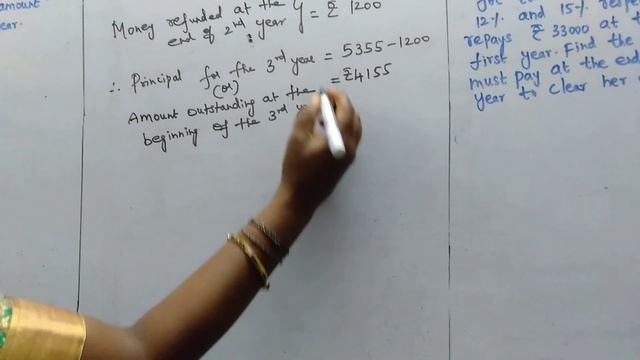 amount
ear.
Money refunded at the
end of 2nd year } = ₹ 1200
∴ Principal for the 3rd year = 5355 - 1200
(or)
= ₹4155
Amount outstanding at the
beginning of the 3rd
12% and 15%
repays ₹ 33000 at
first year. Find the
must pay at the end
year to clear her